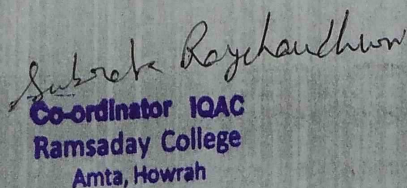 Subrata Raychaudhuri
Co-ordinator IQAC
Ramsaday College
Amta, Howrah